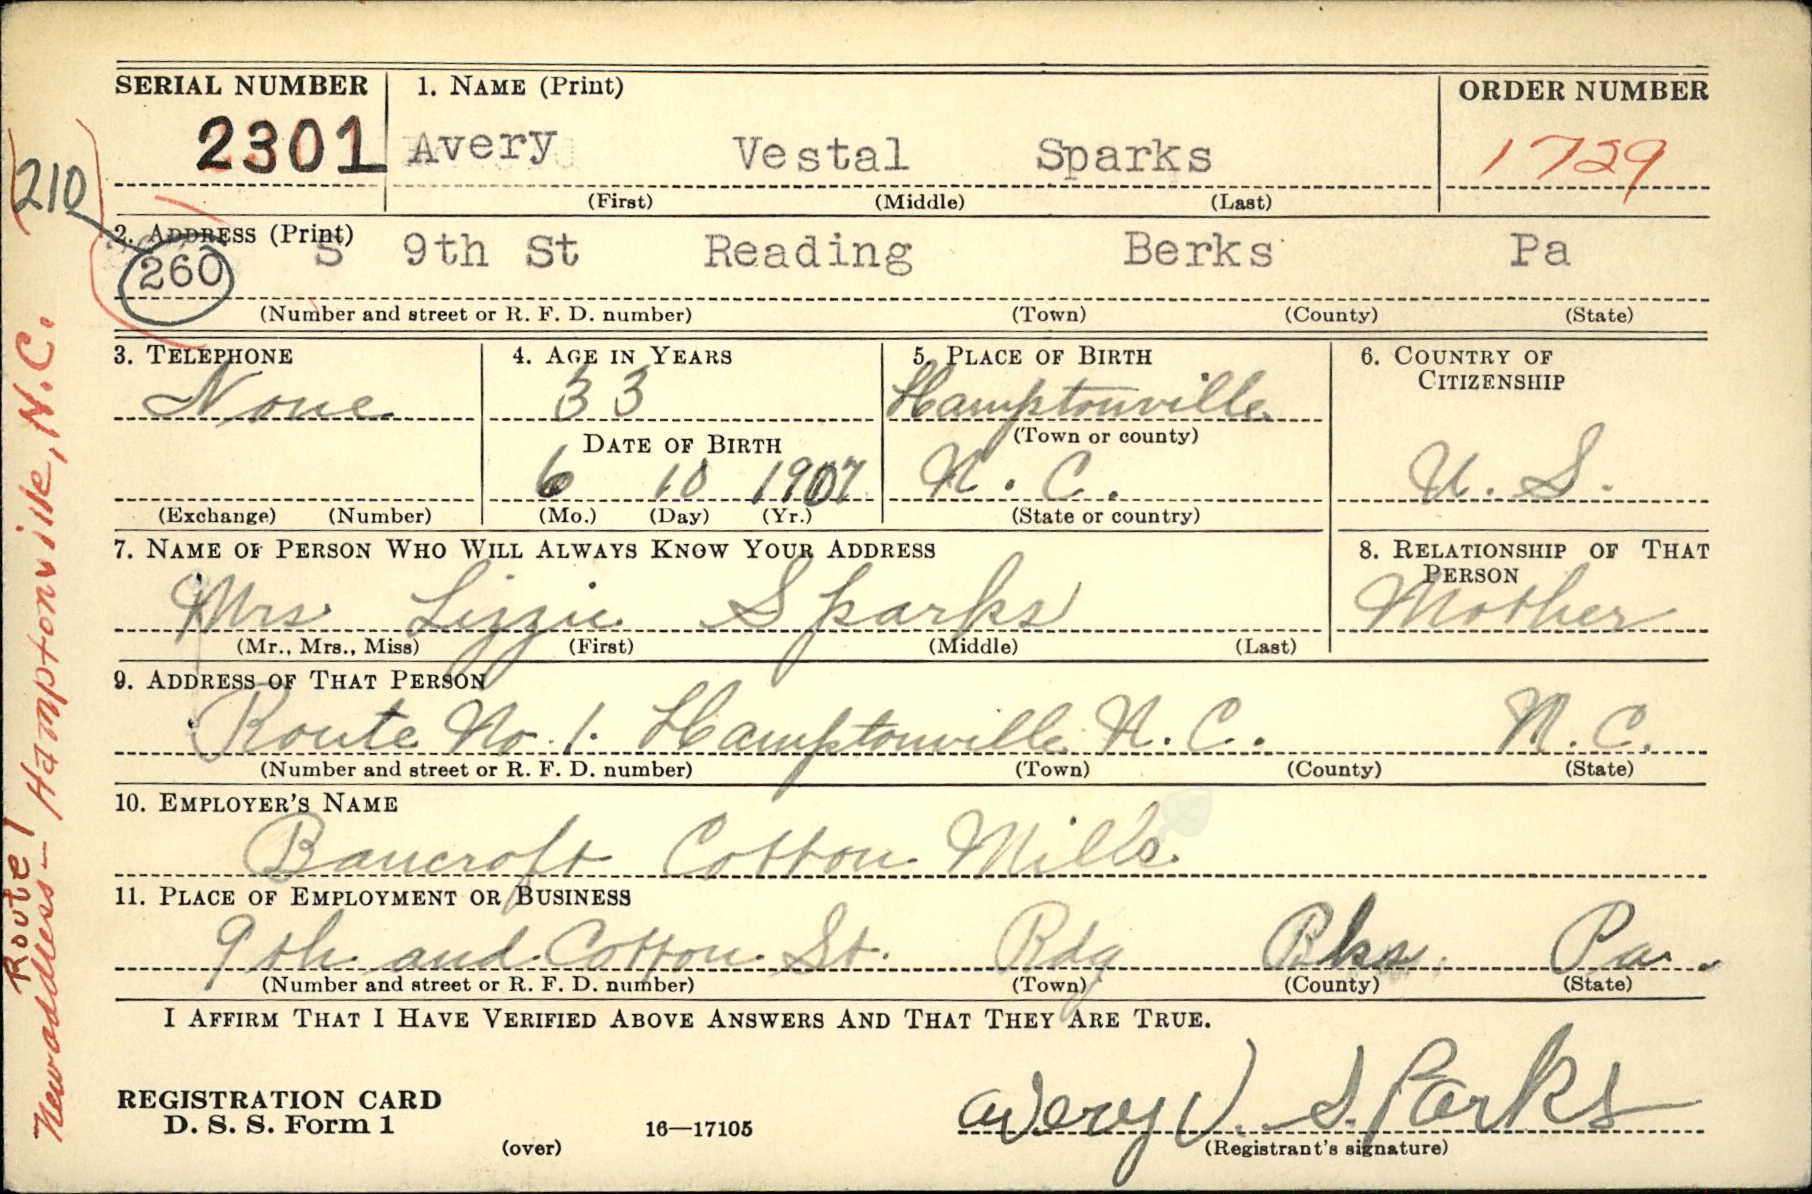 SERIAL NUMBER
2301
1. NAME (Print)
Avery Vestal Sparks
(First) (Middle) (Last)
ORDER NUMBER
1729
2. ADDRESS (Print)
210
260 S 9th St Reading Berks Pa
(Number and street or R. F. D. number) (Town) (County) (State)
3. TELEPHONE
None
(Exchange) (Number)
4. AGE IN YEARS
33
DATE OF BIRTH
6 10 1907
(Mo.) (Day) (Yr.)
5. PLACE OF BIRTH
Hamptonville
(Town or county)
N. C.
(State or country)
6. COUNTRY OF
CITIZENSHIP
U. S.
7. NAME OF PERSON WHO WILL ALWAYS KNOW YOUR ADDRESS
Mrs Lizzie Sparks
(Mr., Mrs., Miss) (First) (Middle) (Last)
8. RELATIONSHIP OF THAT
PERSON
Mother
9. ADDRESS OF THAT PERSON
Route No. 1. Hamptonville N. C. N. C.
(Number and street or R. F. D. number) (Town) (County) (State)
10. EMPLOYER'S NAME
Bancroft Cotton Mills
11. PLACE OF EMPLOYMENT OR BUSINESS
9th and Cotton St. Rdg Bks. Pa.
(Number and street or R. F. D. number) (Town) (County) (State)
I AFFIRM THAT I HAVE VERIFIED ABOVE ANSWERS AND THAT THEY ARE TRUE.
REGISTRATION CARD
D. S. S. Form 1
(over)
16—17105
Avery V. Sparks
(Registrant's signature)
Route 1
New address - Hamptonville, N.C.